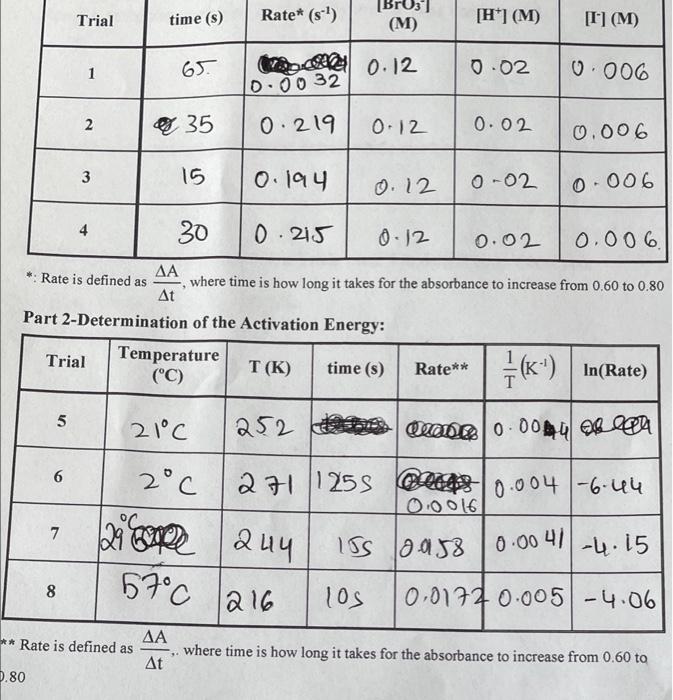 Trial time (s) Rate* (s⁻¹) [BrO₃⁻] (M) [H⁺] (M) [I⁻] (M)
1 65 0.0032 0.12 0.02 0.006
2 35 0.219 0.12 0.02 0.006
3 15 0.194 0.12 0.02 0.006
4 30 0.215 0.12 0.02 0.006
*: Rate is defined as ΔA/Δt, where time is how long it takes for the absorbance to increase from 0.60 to 0.80
Part 2-Determination of the Activation Energy:
Trial Temperature (°C) T (K) time (s) Rate** 1/T (K⁻¹) ln(Rate)
5 21°C 252
6 2°C 271 125s 0.0016 0.004 -6.44
7 29°C 244 15s 0.0041 -4.15
8 57°C 216 10s 0.0172 0.005 -4.06
** Rate is defined as ΔA/Δt,. where time is how long it takes for the absorbance to increase from 0.60 to
0.80